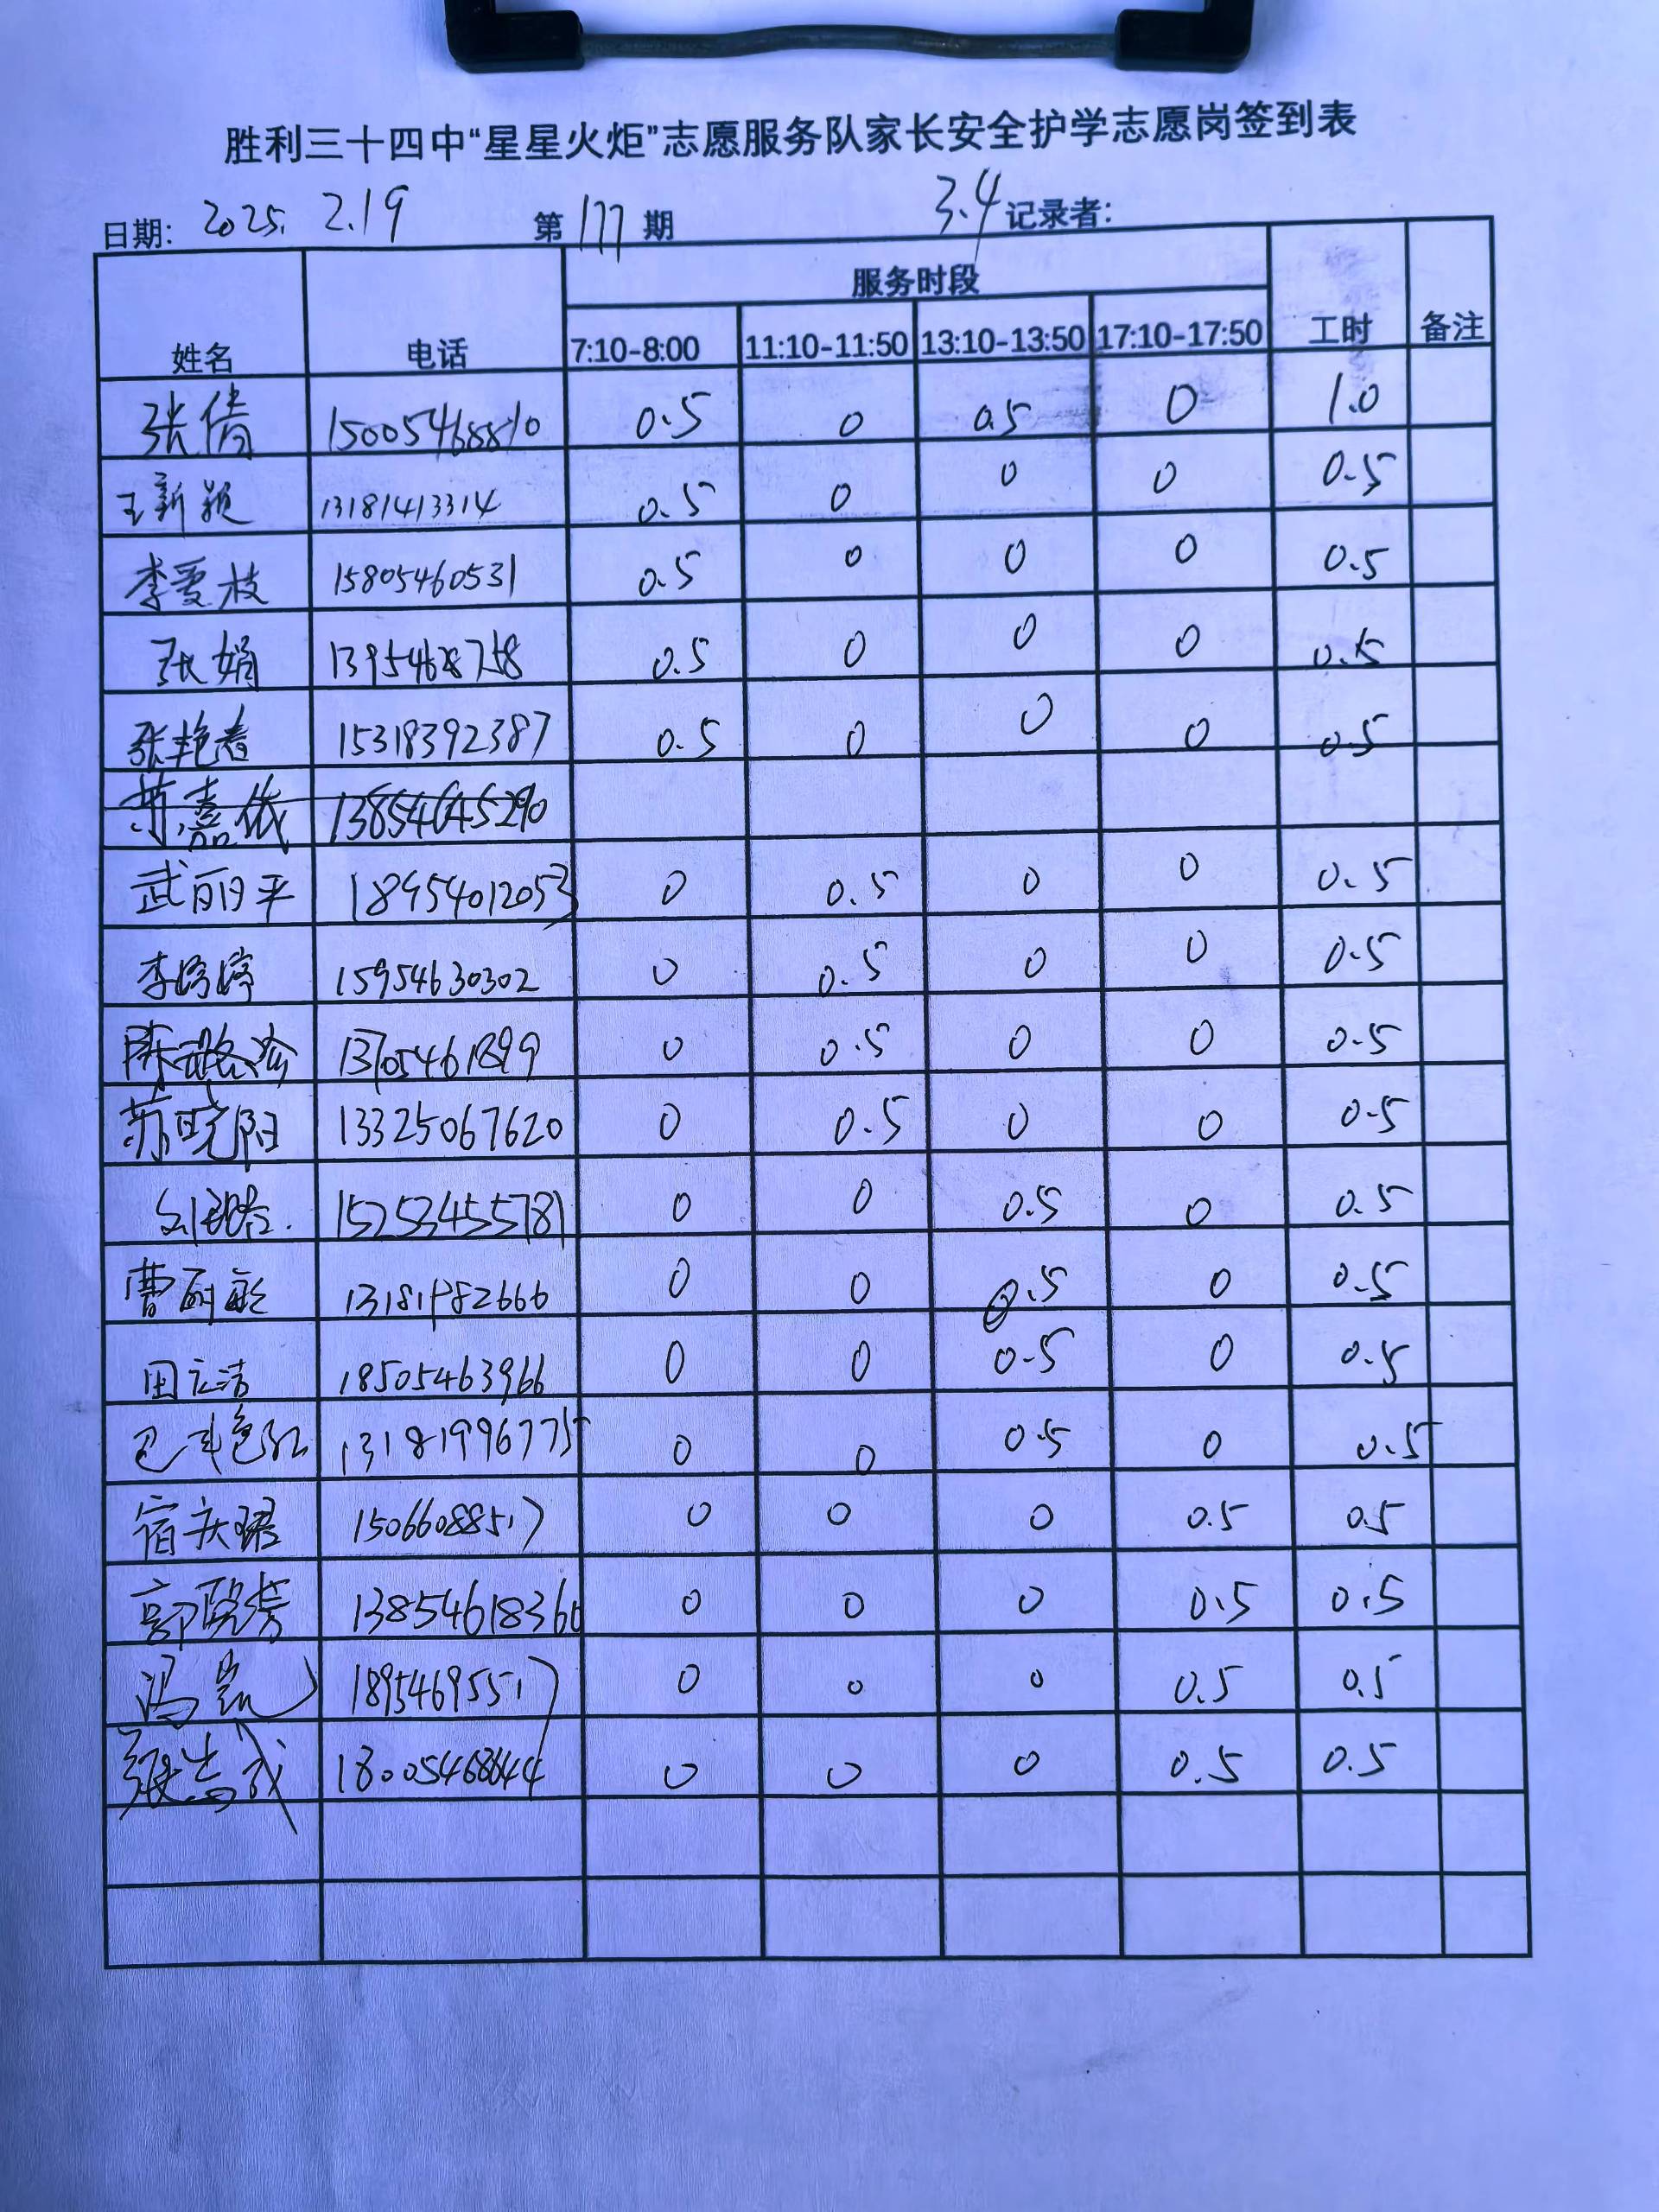 胜利三十四中“星星火炬”志愿服务队家长安全护学志愿岗签到表
日期: 2025. 2.19 第 177 期 3.4 记录者:
服务时段
姓名 电话 7:10-8:00 11:10-11:50 13:10-13:50 17:10-17:50 工时 备注
张倩 15005468810 0.5 0 0.5 0 1.0
王新颖 13181413314 0.5 0 0 0 0.5
李爱枝 15805460531 0.5 0 0 0 0.5
张娟 13954628758 0.5 0 0 0 0.5
张艳春 15318392387 0.5 0 0 0 0.5
苏嘉依 13854645290
武丽平 18954012053 0 0.5 0 0 0.5
李婷婷 15954630302 0 0.5 0 0 0.5
陈 13705461899 0 0.5 0 0 0.5
苏晓阳 13325067620 0 0.5 0 0 0.5
15253455781 0 0 0.5 0 0.5
曹 0 0 0.5 0 0.5
田立洁 18505463966 0 0 0.5 0 0.5
巴艳红 13181996775 0 0 0.5 0 0.5
宿庆珺 15066088517 0 0 0 0.5 0.5
郭晓芳 13854618366 0 0 0 0.5 0.5
冯凯 18954695517 0 0 0 0.5 0.5
张志成 18005468644 0 0 0 0.5 0.5